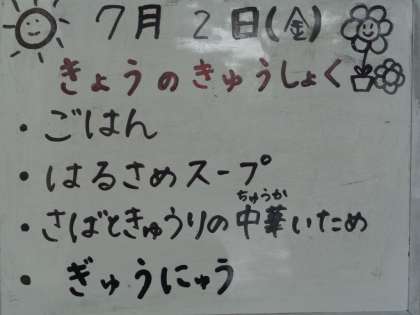 7月2日(金)
きょうのきゅうしょく
・ごはん
・はるさめスープ
ちゅうか
・さばときゅうりの中華いため
・ぎゅうにゅう